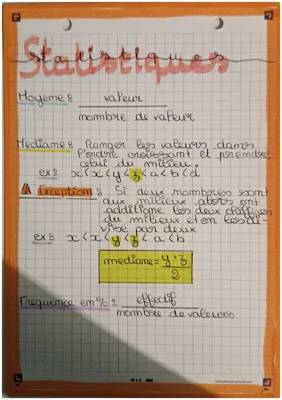 Statistiques
Moyenne : valeur
nombre de valeur
Mediane : Ranger les valeurs dans
l'ordre croissant et prendre
celui du milieu.
ex : x < x < y < z < a < b < d
⚠ Exception : Si deux nombres sont
aux milieux alors on
additionne les deux chiffres
du milieux et on les di-
vise par deux
ex : x < x < y < z < a < b
mediane = y + z
2
Frequence em % : effectif
nombre de valeurs